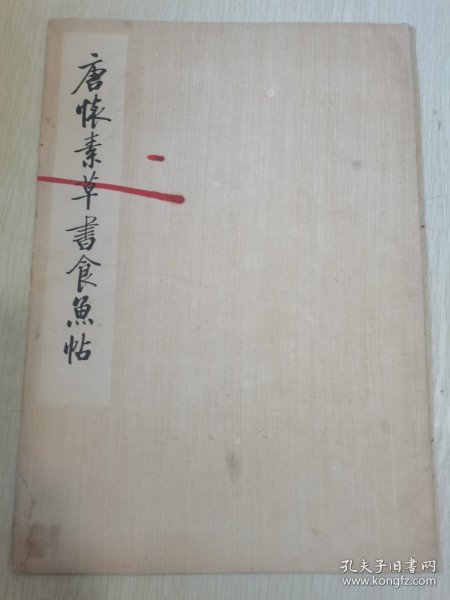 唐懷素草書食魚帖
孔夫子旧书网
www.kongfz.com